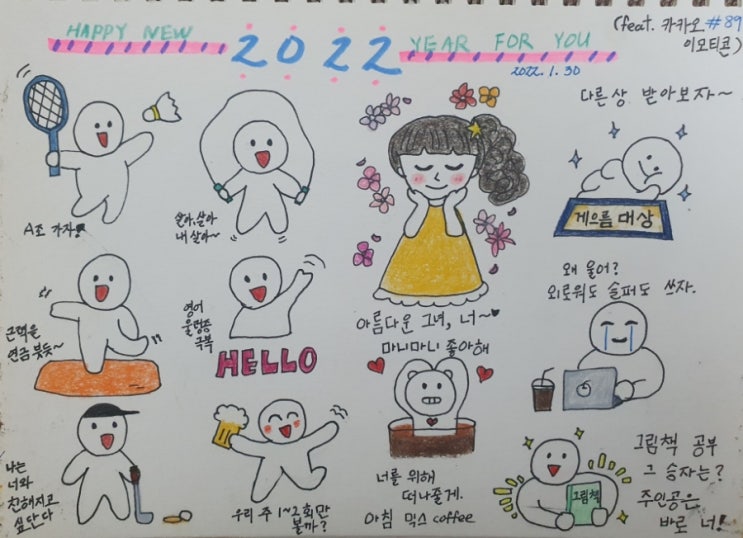 HAPPY NEW 2022 YEAR FOR YOU
(feat. 카카오 #89
이모티콘)
2022. 1. 30
A조 가자!
살아, 살아
내 살아~
아름다운 그녀, 너~
다른 상 받아보자~
게으름 대상
근력을
연금 붓듯~
영어
울렁증
극복
HELLO
마니마니 좋아해
왜 울어?
외로워도 슬퍼도 쓰자.
나는
너와
친해지고
싶단다
우리 주 1~2회만
볼까?
너를 위해
떠나줄게.
아침 믹스 coffee
그림책
그림책 공부
그 승자는?
주인공은
바로 너!